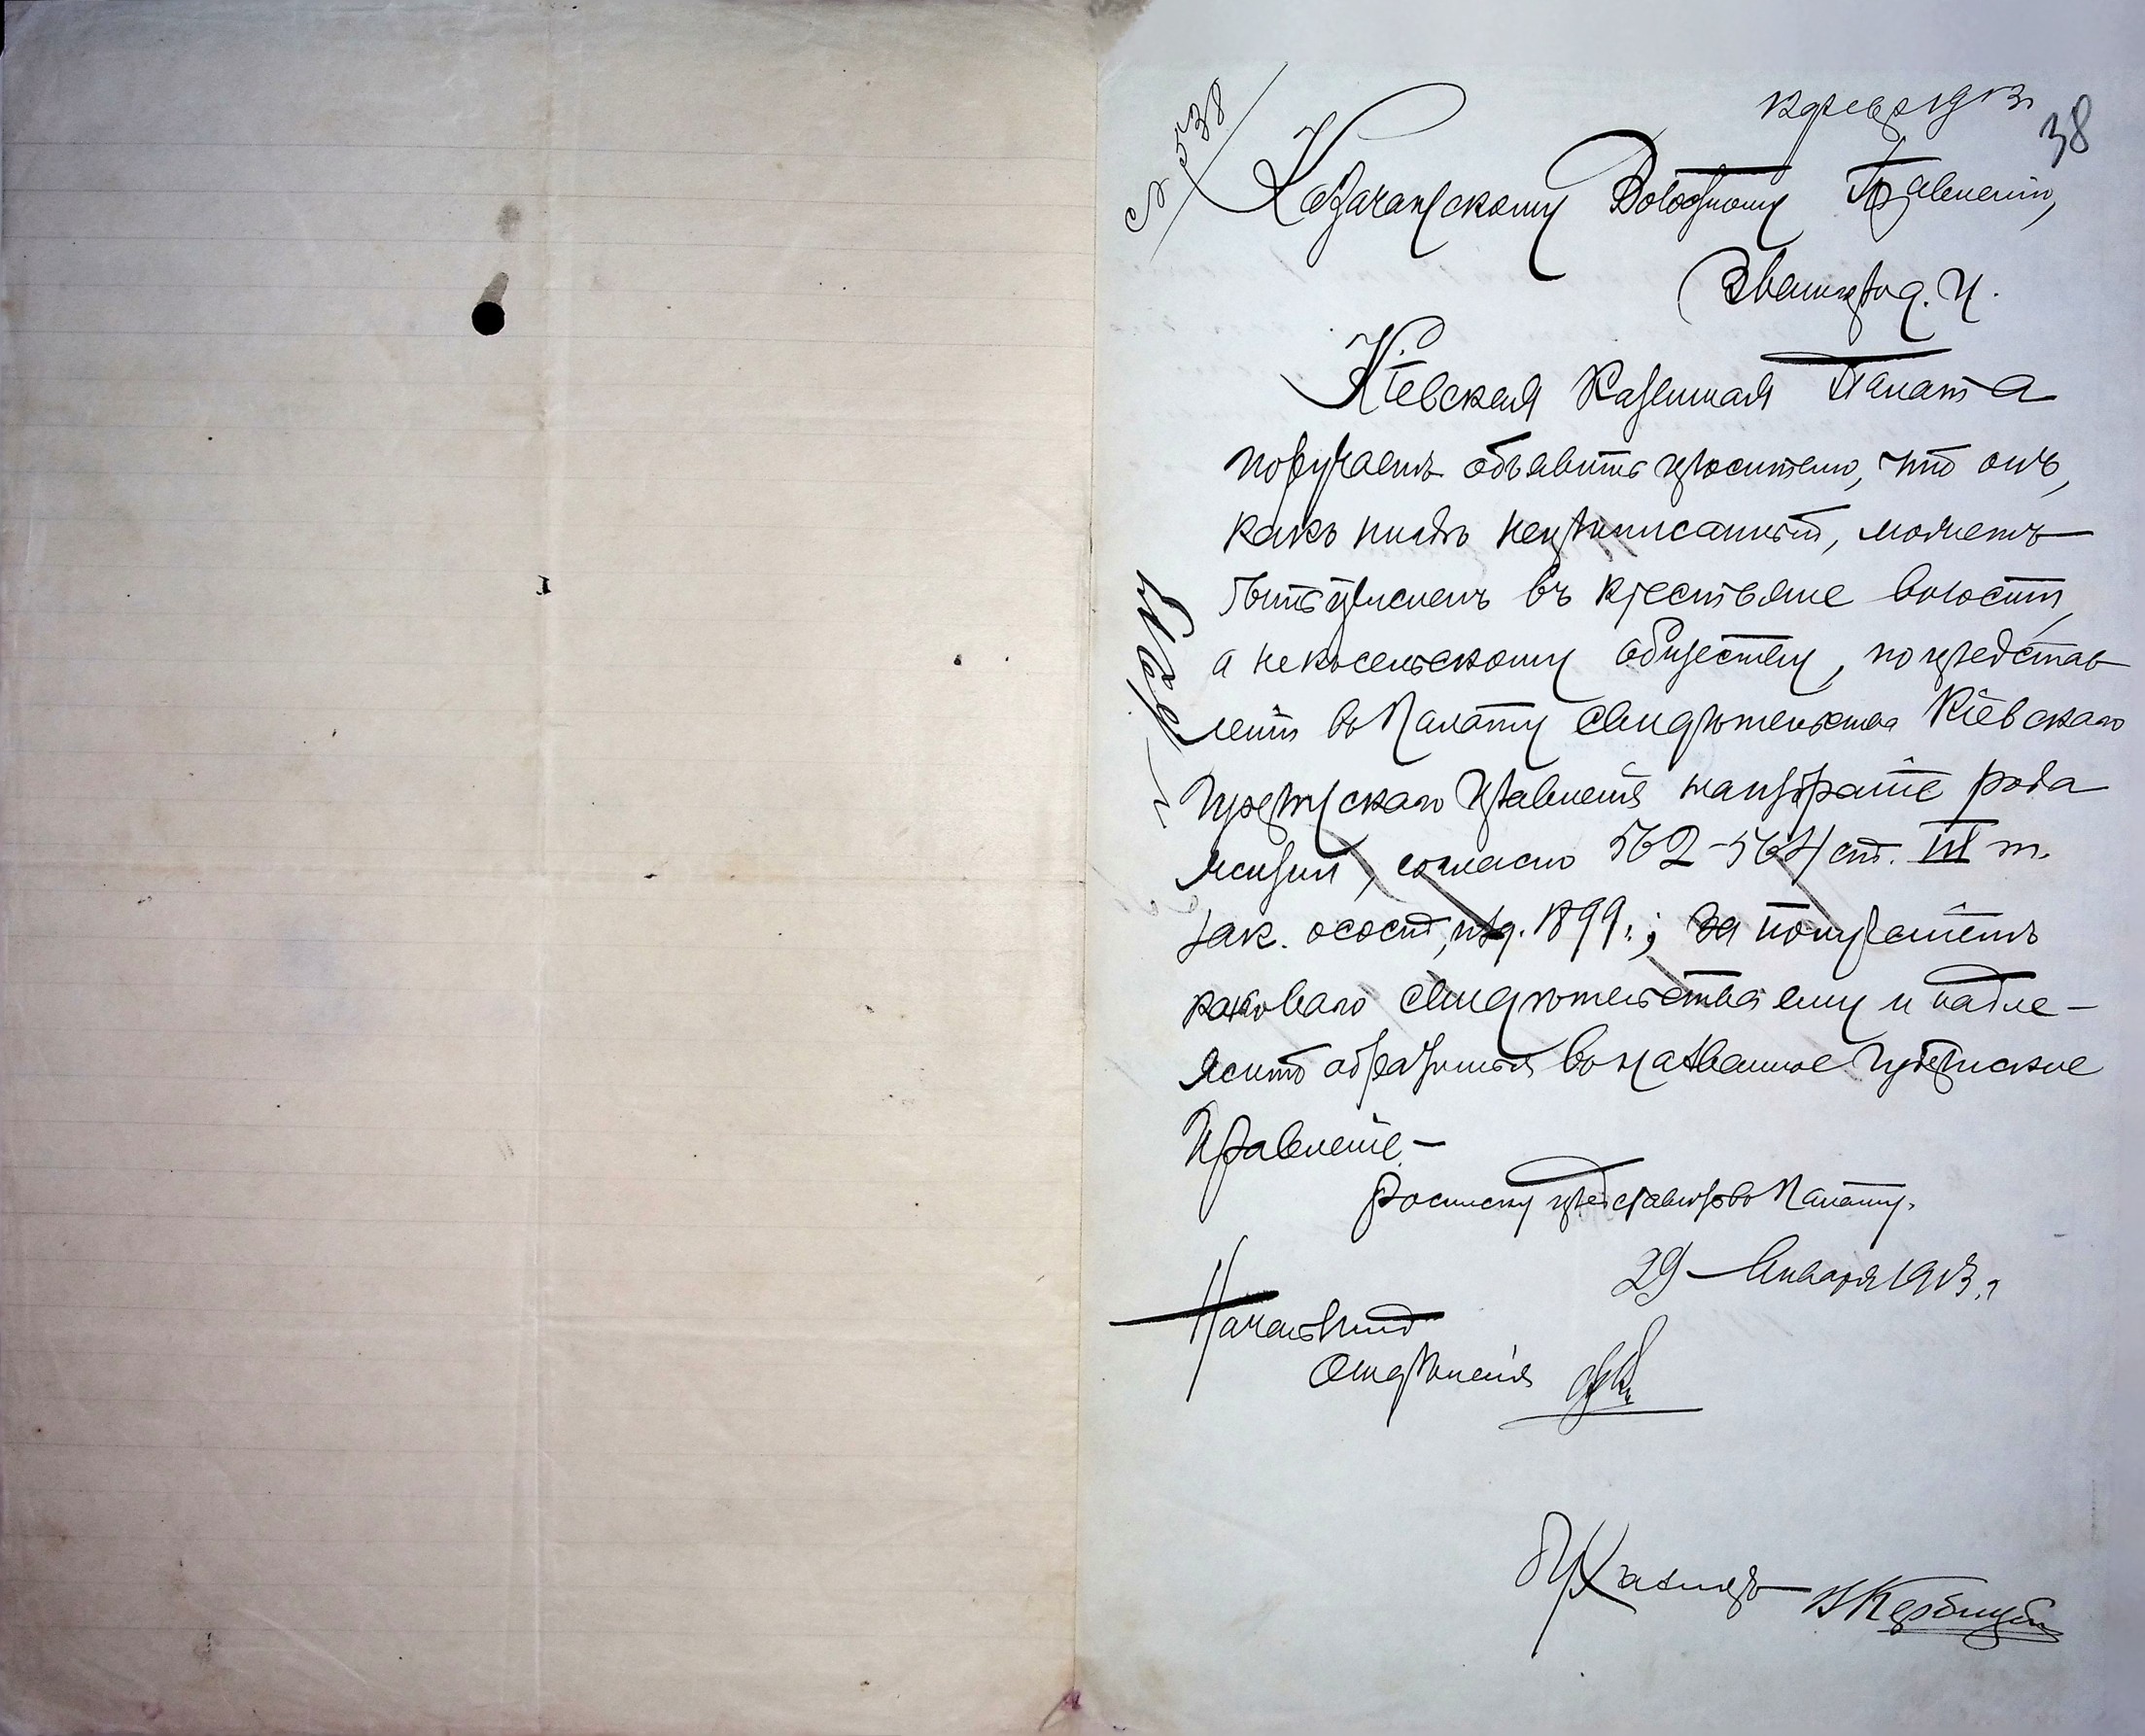 № 538
1913
38
Казачанскому Волостному Правленію,
Звенигород. у.
Кіевская Казенная Палата
поручаетъ объявить просителю, что онъ,
какъ нигдѣ неприписанный, можетъ
быть причисленъ въ крестьяне волости,
а не къ сельскому обществу, по представ
леніи въ Палату свидѣтельства Кіевскаго
Губернскаго Правленія на избраніе рода
жизни, согласно 562-564 ст. IX т.
Зак. о сост, изд. 1899 г.; за полученіемъ
каковаго свидѣтельства ему и надле-
житъ обратиться въ названное Губернское
Правленіе. –
Росписку представить въ Палату.
29 Января 1913 г.
Начальникъ
Отдѣленія